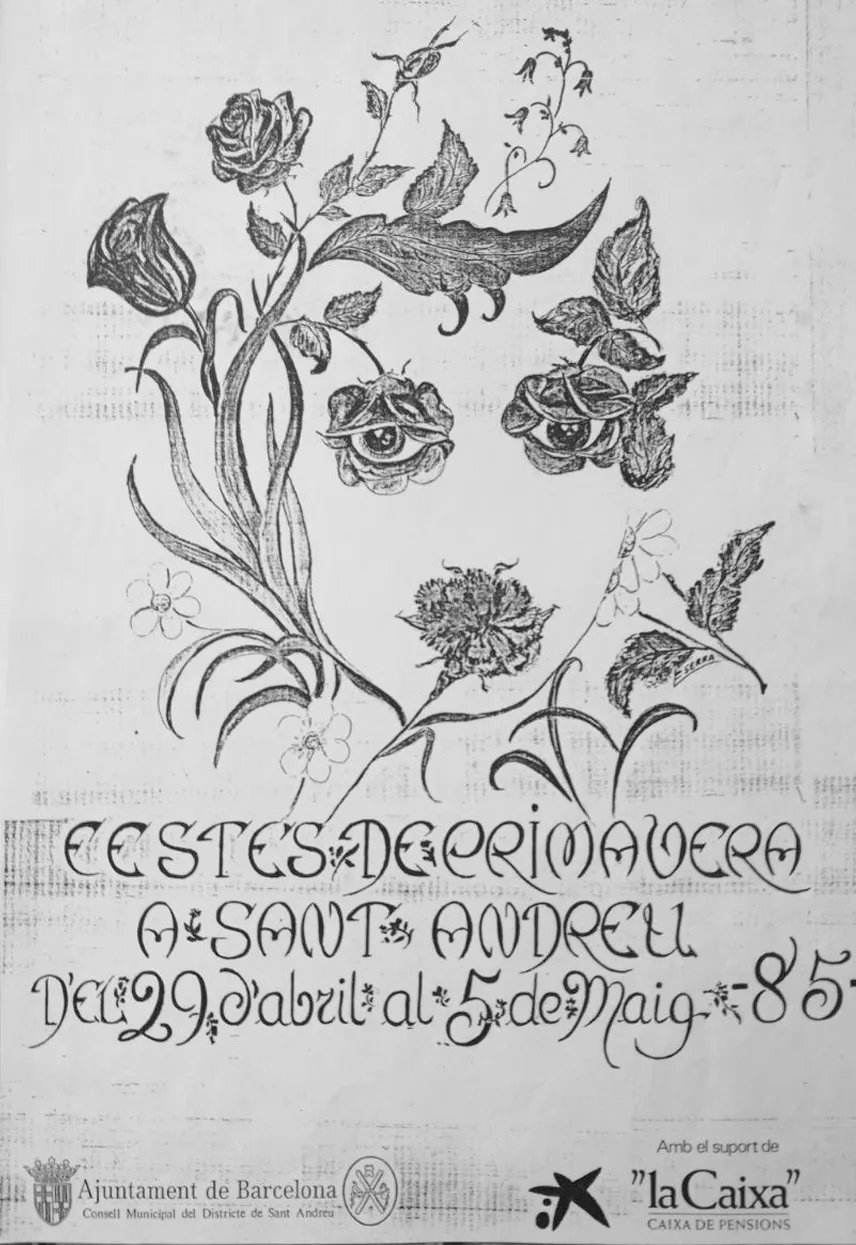 E. SERRA
FESTES DE PRIMAVERA
A SANT ANDREU
DEL 29 d'abril al 5 de Maig -85-
Amb el suport de
Ajuntament de Barcelona
Consell Municipal del Districte de Sant Andreu
"la Caixa"
CAIXA DE PENSIONS